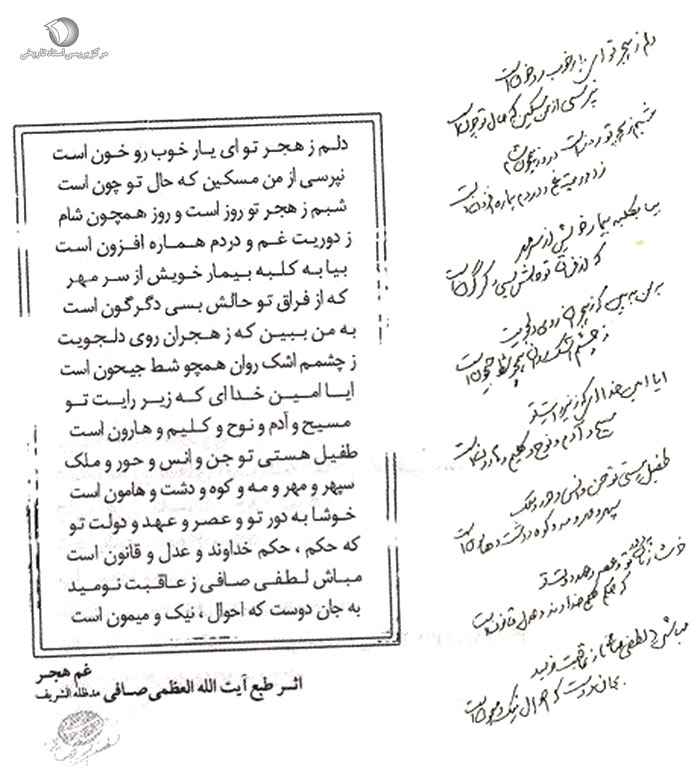 مرکز بررسی اسناد تاریخی
دلم ز هجر تو ای یار خوب رو خون است
نپرسی از من مسکین که حال تو چون است
شبم ز هجر تو روز است و روز همچون شام
ز دوریت غم و دردم هماره افزون است
بیا به کلبه بیمار خویش از سر مهر
که از فراق تو حالش بسی دگرگون است
به من ببین که ز هجران روی دلجویت
ز چشمم اشک روان همچو شط جیحون است
ایا امین خدا ای که زیر رایت تو
مسیح و آدم و نوح و کلیم و هارون است
طفیل هستی تو جن و انس و حور و ملک
سپهر و مهر و مه و کوه و دشت و هامون است
خوشا به دور تو و عصر و عهد و دولت تو
که حکم ، حکم خداوند و عدل و قانون است
مباش لطفی صافی ز عاقبت نومید
به جان دوست که احوال ، نیک و میمون است
غم هجر
اثر طبع آیت الله العظمی صافی مدظله الشریف
دلم ز هجر تو ای یار خوب رو خون است
نپرسی از من مسکین که حال تو چون است
شبم ز هجر تو روز است و روز همچون شام
ز دوریت غم و دردم هماره افزون است
بیا بکلبه بیمار خویش از سر مهر
که از فراق تو حالش بسی دگرگون است
به من ببین که ز هجران روی دلجویت
ز چشمم اشک روان همچو شط جیحون است
ایا امین خدا ای که زیر رایت تو
مسیح و آدم و نوح و کلیم و هارون است
طفیل هستی تو جن و انس و حور و ملک
سپهر و مهر و مه و کوه و دشت و هامون است
خوشا تو و عصر و عهد و دولت تو
که حکم حکم خداوند و عدل و قانون است
مباش لطفی صافی ز عاقبت نومید
بجان دوست که احوال نیک و میمون است